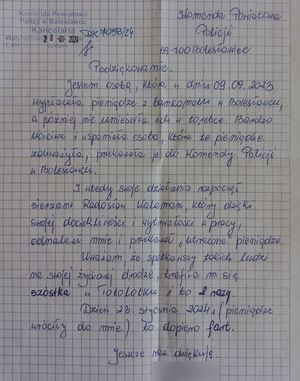 Komenda Powiatowa
Policji w Bolesławcu
Kancelaria
Komenda Powiatowa
Policji
59-700 Bolesławiec
Podziękowanie.
Jestem osobą, która w dniu 09.09.2023
wypłacała pieniądze z bankomatu w Bolesławcu,
a później nie umieściła ich w torebce. Bardzo
uczciwa i wspaniała osoba, która te pieniądze
zauważyła, przekazała je do Komendy Policji
w Bolesławcu.
I wtedy swoje działania rozpoczął
sierżant Radosław który dzięki
swojej dociekliwości i wytrwałości w pracy,
odnalazł mnie i przekazał utracone pieniądze.
Uważam, że spotkawszy takich ludzi
na swojej życiowej drodze, trafiła mi się
szóstka w Totolotku i to 2 razy.
Dzień 23. stycznia 2024 r. (pieniądze
wróciły do mnie) to dopiero fart.
Jeszcze raz dziękuję